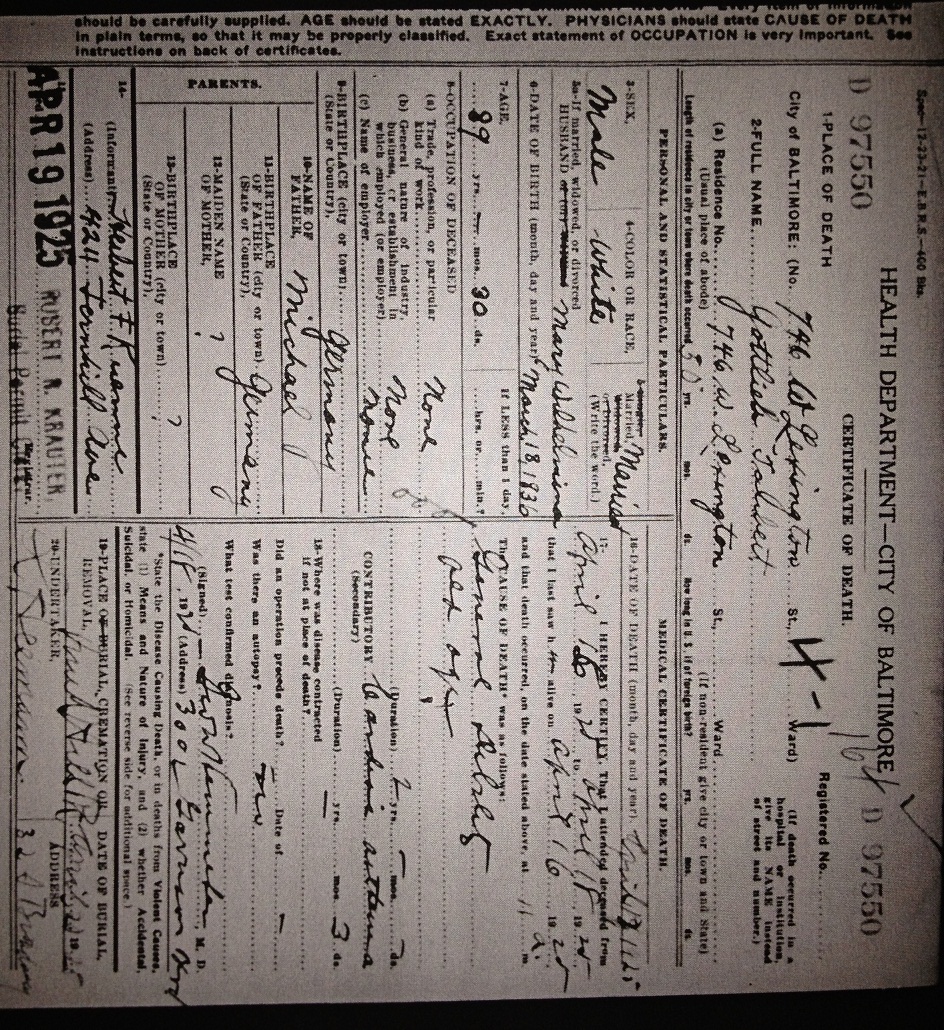 should be carefully supplied. AGE should be stated EXACTLY. PHYSICIANS should state CAUSE OF DEATH
in plain terms, so that it may be properly classified. Exact statement of OCCUPATION is very important. See
instructions on back of certificates.
Spec—12-23-21—E.B.R.S.—400 Bks.
HEALTH DEPARTMENT—CITY OF BALTIMORE
D 97550
D 97550
CERTIFICATE OF DEATH.
1-PLACE OF DEATH
Registered No.
City of BALTIMORE: (No. 746 W Lexington St., 4-1 Ward)
(If death occurred in a hospital or institution, give its NAME instead of street and number.)
2-FULL NAME Gottlieb
(a) Residence No. 746 W. Lexington St., Ward.
(Usual place of abode)
(If non-resident give city or town and State)
Length of residence in city or town where death occurred yrs. mos. ds. How long in U. S. if of foreign birth? yrs. mos. ds.
PERSONAL AND STATISTICAL PARTICULARS.
3-SEX, Male
4-COLOR OR RACE, White
Married, Married
(Write the word.)
5a-If married, widowed, or divorced
HUSBAND Mary Wilhelmina
6-DATE OF BIRTH (month, day and year) March 18 1836
7-AGE, 89 yrs. - mos. 30 ds.
If LESS than 1 day, hrs. or min.?
8-OCCUPATION OF DECEASED
(a) Trade, profession, or particular
kind of work None
(b) General nature of industry,
business, or establishment in
which employed (or employer) None
(c) Name of employer None
9-BIRTHPLACE (city or town) Germany
(State or Country),
PARENTS.
10-NAME OF
FATHER, Michael
11-BIRTHPLACE
OF FATHER (city or town) Germany
(State or Country),
12-MAIDEN NAME
OF MOTHER, ?
13-BIRTHPLACE
OF MOTHER (city or town) ?
(State or Country),
14-
(Informant)
(Address) 424
APR 19 1925
ROBERT A. KRAUTER
MEDICAL CERTIFICATE OF DEATH.
16-DATE OF DEATH (month, day and year)
17- I HEREBY CERTIFY, That I attended deceased from
April 16, 1925 to April 18 1925
that I last saw him alive on April 16 1925
and that death occurred, on the date stated above, at 11 a. m.
The CAUSE OF DEATH* was as follows:
General Debility
old age
(Duration) 2 yrs. - mos. - ds.
CONTRIBUTORY
(Secondary)
(Duration) yrs. mos. 3 ds.
18-Where was disease contracted
if not at place of death?
Did an operation precede death? Date of
Was there an autopsy?
What test confirmed diagnosis?
(Signed) M. D.
4/18, 1925 (Address)
*State the Disease Causing Death, or in deaths from Violent Causes,
state (1) Means and Nature of Injury, and (2) whether Accidental,
Suicidal, or Homicidal. (See reverse side for additional space.)
19-PLACE OF BURIAL, CREMATION OR REMOVAL,
DATE OF BURIAL
20-UNDERTAKER,
ADDRESS